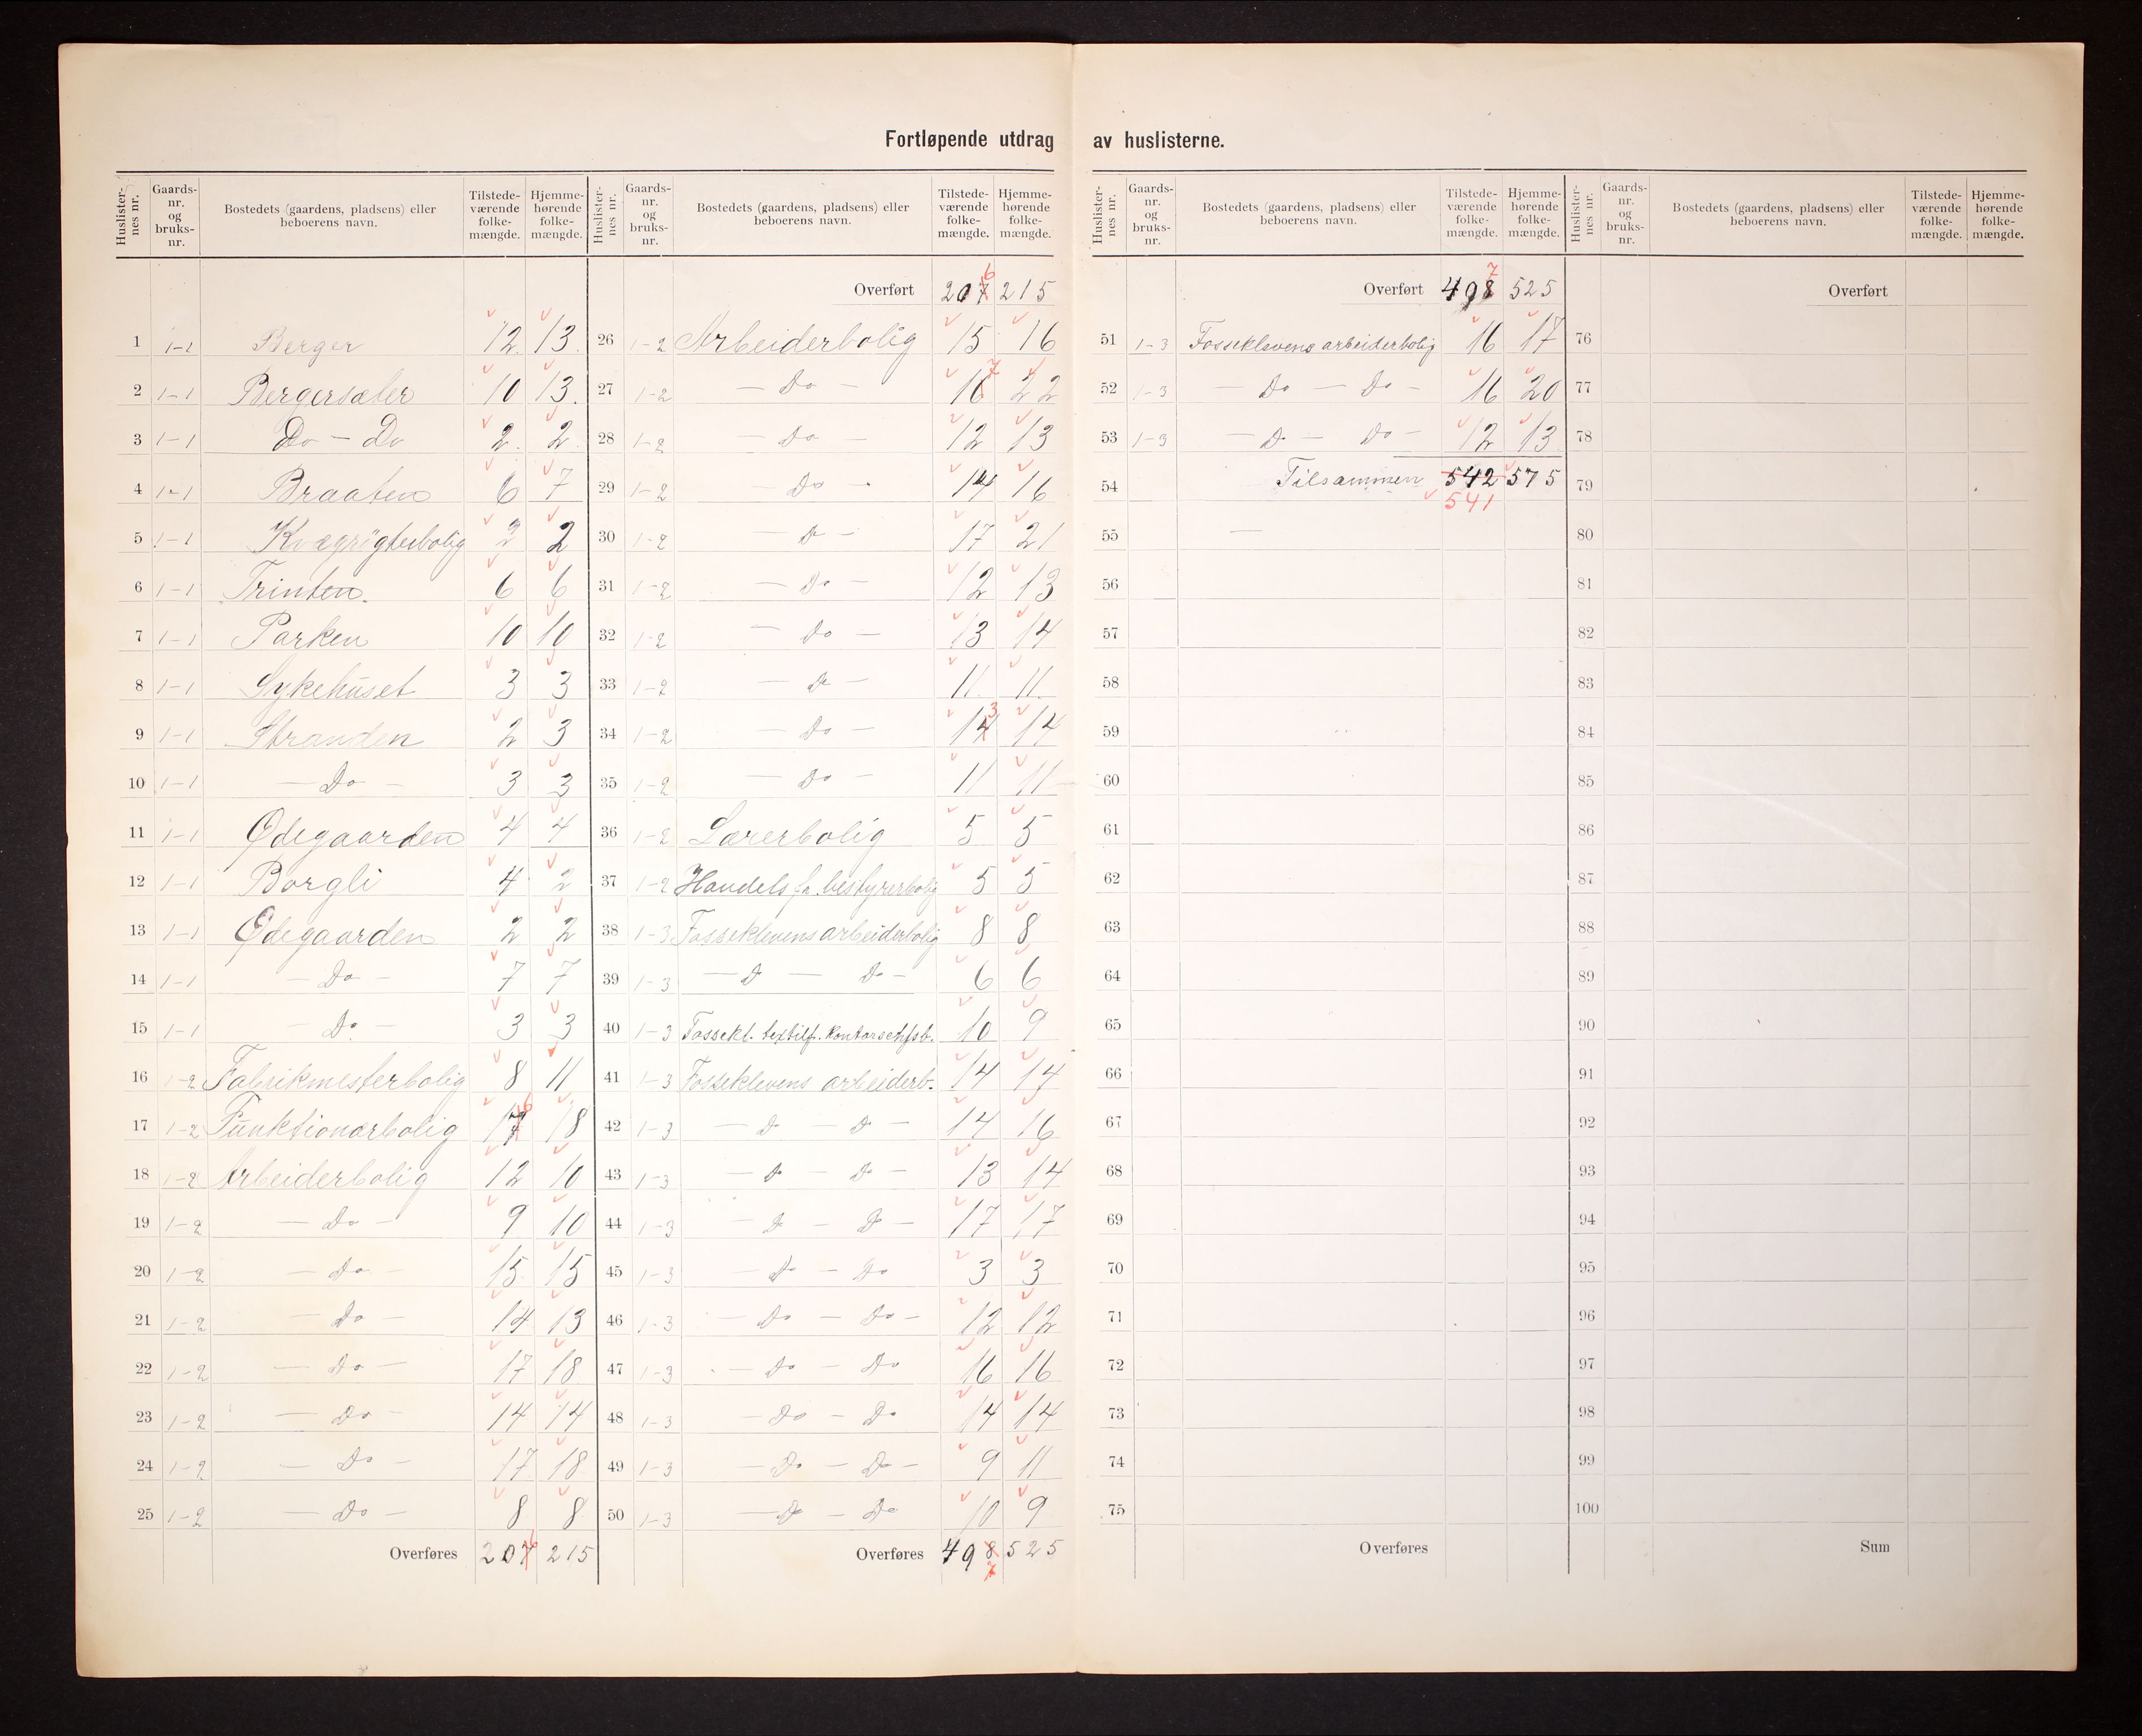 Fortløpende utdrag av huslisterne.
Huslisternes nr. Gaardsnr. og bruksnr. Bostedets (gaardens, pladsens) eller beboerens navn. Tilstedeværende folkemængde. Hjemmehørende folkemængde.
1 1-1 Berger 12 13
2 1-1 Bergersæter 10 13
3 1-1 Do - Do 2 2
4 1-1 Braaten 6 7
5 1-1 Kvægrøgterbolig 2 2
6 1-1 Trinten 6 6
7 1-1 Parken 10 10
8 1-1 Sykehuset 3 3
9 1-1 Stranden 2 3
10 1-1 - Do - 3 3
11 1-1 Ødegaarden 4 4
12 1-1 Borgli 4 2
13 1-1 Ødegaarden 2 2
14 1-1 - Do - 7 7
15 1-1 - Do - 3 3
16 1-2 Fabrikmesterbolig 8 11
17 1-2 Funktionærbolig 17 6 18
18 1-2 Arbeiderbolig 12 10
19 1-2 - Do - 9 10
20 1-2 - Do - 15 15
21 1-2 - Do - 14 13
22 1-2 - Do - 17 18
23 1-2 - Do - 14 14
24 1-2 - Do - 17 18
25 1-2 - Do - 8 8
Overføres 207 6 215
Huslisternes nr. Gaardsnr. og bruksnr. Bostedets (gaardens, pladsens) eller beboerens navn. Tilstedeværende folkemængde. Hjemmehørende folkemængde.
Overført 207 6 215
26 1-2 Arbeiderbolig 15 16
27 1-2 - Do - 16 7 22
28 1-2 - Do - 12 13
29 1-2 - Do - 14 16
30 1-2 - Do - 17 21
31 1-2 - Do - 12 13
32 1-2 - Do - 13 14
33 1-2 - Do - 11 11
34 1-2 - Do - 14 3 14
35 1-2 - Do - 11 11
36 1-2 Lærerbolig 5 5
37 1-2 Handelsf. bestyrerbolig 5 5
38 1-3 Fosseklevens arbeiderbolig 8 8
39 1-3 - Do - Do - 6 6
40 1-3 Fossekl. textilf. kontorschefsb. 10 9
41 1-3 Fosseklevens arbeiderb. 14 14
42 1-3 - Do - Do - 14 16
43 1-3 - Do - Do - 13 14
44 1-3 - Do - Do - 17 17
45 1-3 - Do - Do 3 3
46 1-3 - Do - Do - 12 12
47 1-3 - Do - Do 16 16
48 1-3 - Do - Do 14 14
49 1-3 - Do - Do - 9 11
50 1-3 - Do - Do 10 9
Overføres 498 7 525
Huslisternes nr. Gaardsnr. og bruksnr. Bostedets (gaardens, pladsens) eller beboerens navn. Tilstedeværende folkemængde. Hjemmehørende folkemængde.
Overført 498 7 525
51 1-3 Fosseklevens arbeiderbolig 16 17
52 1-3 - Do - Do - 16 20
53 1-3 - Do - Do - 12 13
54 Tilsammen 542 575
541
55
56
57
58
59
60
61
62
63
64
65
66
67
68
69
70
71
72
73
74
75
Overføres
Huslisternes nr. Gaardsnr. og bruksnr. Bostedets (gaardens, pladsens) eller beboerens navn. Tilstedeværende folkemængde. Hjemmehørende folkemængde.
Overført
76
77
78
79
80
81
82
83
84
85
86
87
88
89
90
91
92
93
94
95
96
97
98
99
100
Sum